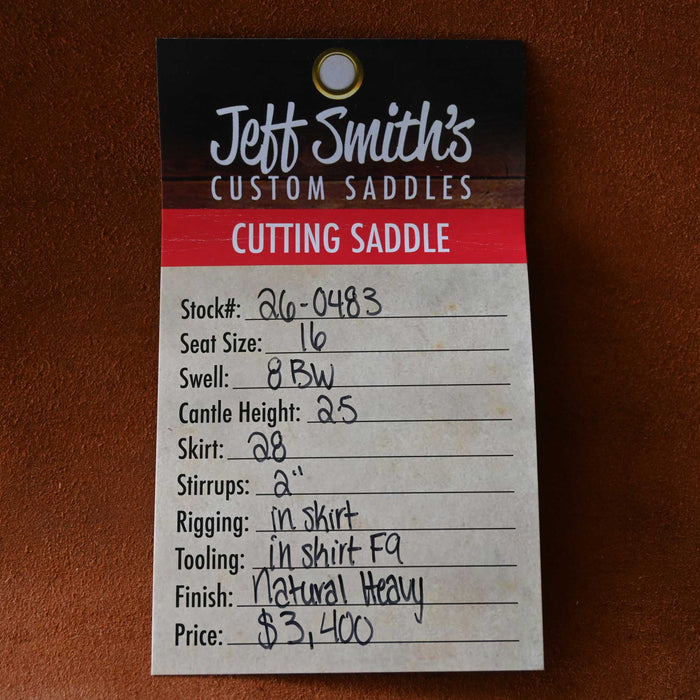 Jeff Smith's
CUSTOM SADDLES
CUTTING SADDLE
Stock#: 26-0483
Seat Size: 16
Swell: 8 BW
Cantle Height: 25
Skirt: 28
Stirrups: 2"
Rigging: in skirt
Tooling: in shirt F9
Finish: Natural Heavy
Price: $3,400